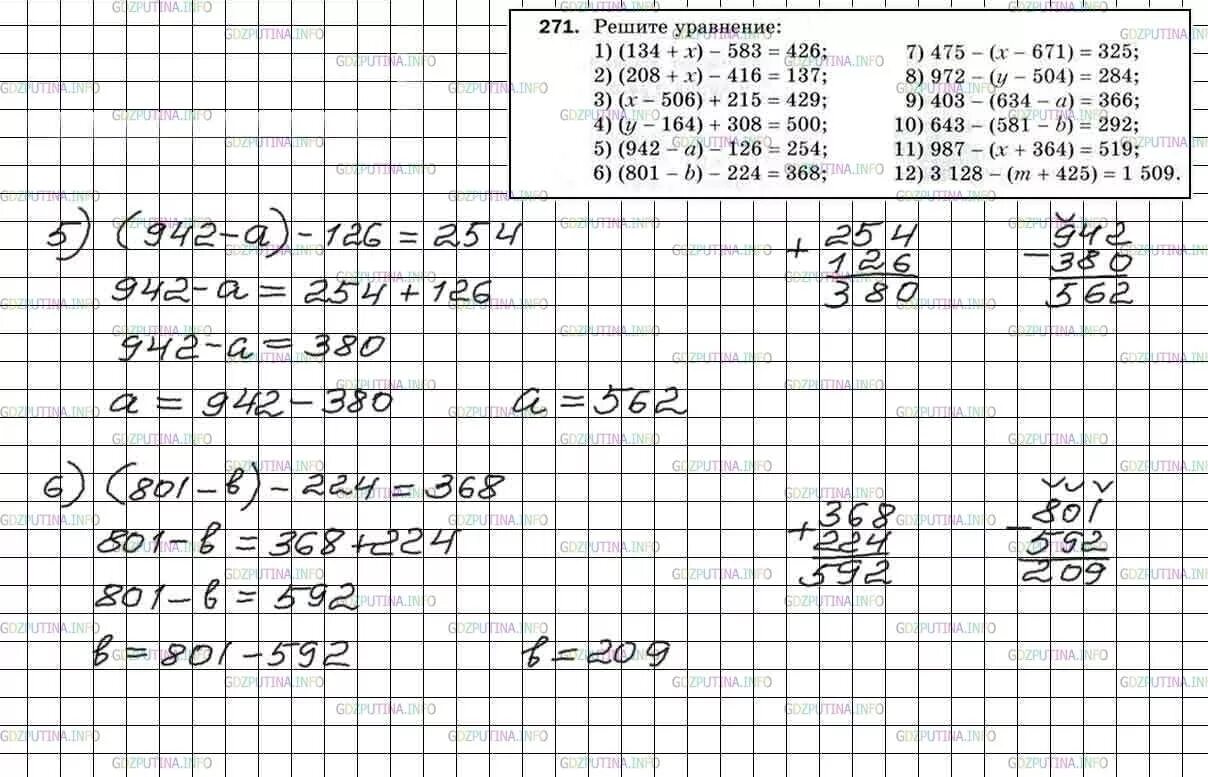 271. Решите уравнение:
1) (134 + x) − 583 = 426;
2) (208 + x) − 416 = 137;
3) (x − 506) + 215 = 429;
4) (y − 164) + 308 = 500;
5) (942 − a) − 126 = 254;
6) (801 − b) − 224 = 368;
7) 475 − (x − 671) = 325;
8) 972 − (y − 504) = 284;
9) 403 − (634 − a) = 366;
10) 643 − (581 − b) = 292;
11) 987 − (x + 364) = 519;
12) 3 128 − (m + 425) = 1 509.
5) (942−a)−126 = 254
942−a = 254+126
942−a = 380
a = 942−380 a = 562
+ 254
126
380
− 942
380
562
6) (801−в)−224 = 368
801−в = 368+224
801−в = 592
в = 801−592 в = 209
+ 368
224
592
− 801
592
209
GDZPUTINA.INFO